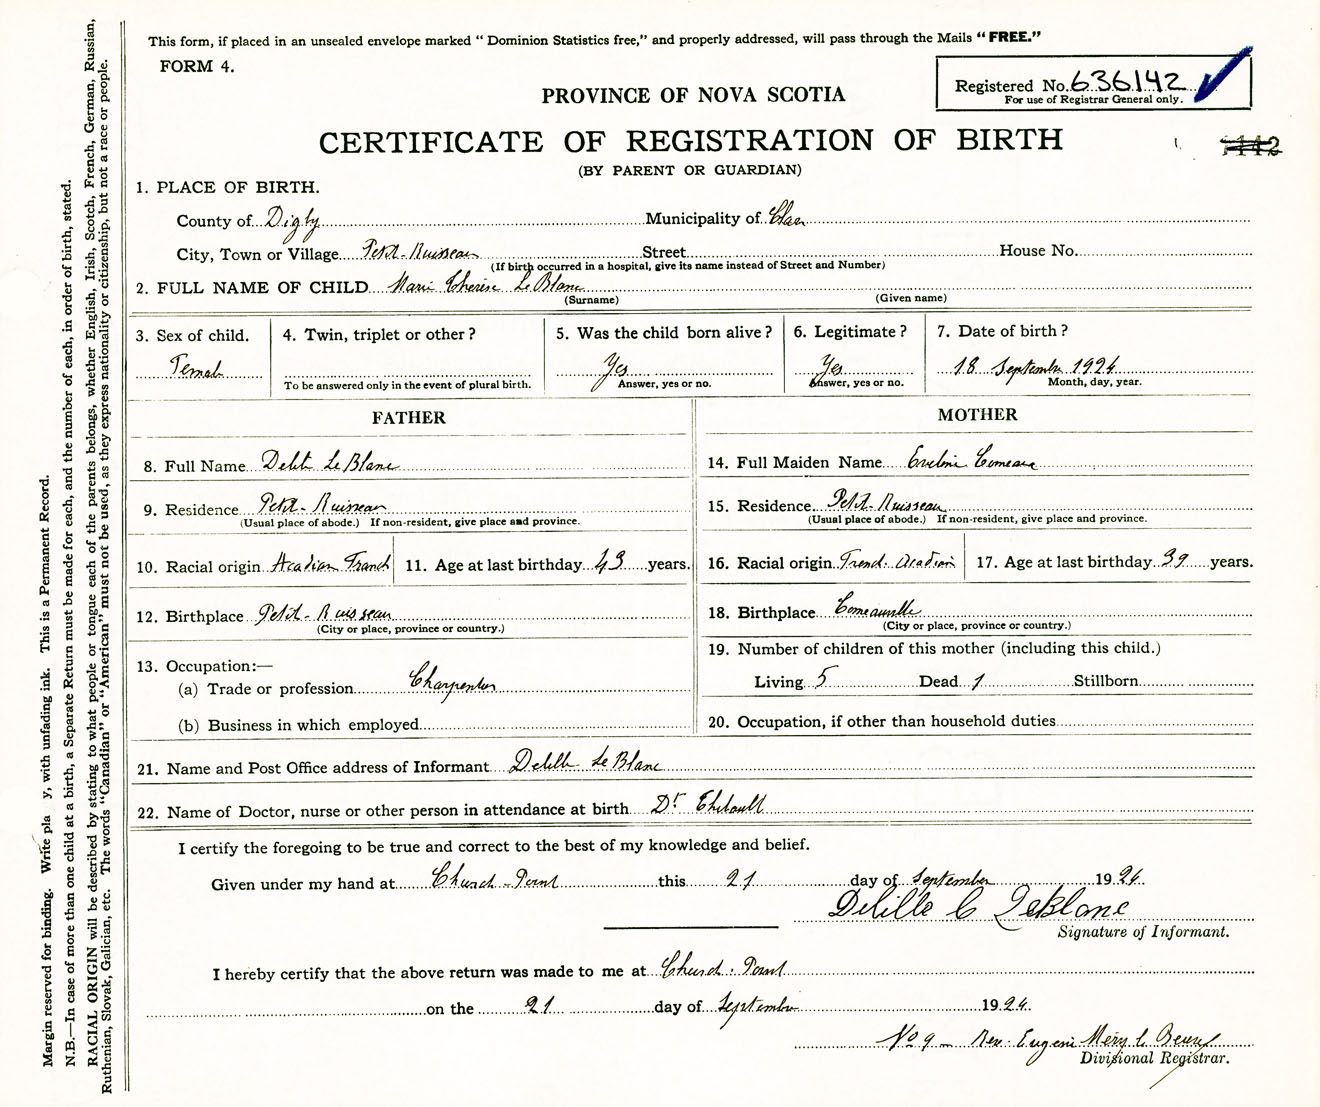 This form, if placed in an unsealed envelope marked “ Dominion Statistics free,” and properly addressed, will pass through the Mails “ FREE.”
FORM 4.
Registered No. 636142
For use of Registrar General only.
PROVINCE OF NOVA SCOTIA
CERTIFICATE OF REGISTRATION OF BIRTH
(BY PARENT OR GUARDIAN)
1. PLACE OF BIRTH.
County of Digby Municipality of Clare
City, Town or Village Petit-Ruisseau Street House No.
(If birth occurred in a hospital, give its name instead of Street and Number)
2. FULL NAME OF CHILD Marie Therese LeBlanc
(Surname) (Given name)
3. Sex of child. 4. Twin, triplet or other ? 5. Was the child born alive ? 6. Legitimate ? 7. Date of birth ?
Female Yes Yes 18 September 1924
To be answered only in the event of plural birth. Answer, yes or no. Answer, yes or no. Month, day, year.
FATHER MOTHER
8. Full Name LeBlanc 14. Full Maiden Name Eveline Comeau
9. Residence Petit-Ruisseau 15. Residence Petit-Ruisseau
(Usual place of abode.) If non-resident, give place and province. (Usual place of abode.) If non-resident, give place and province.
10. Racial origin Acadian French 11. Age at last birthday 43 years. 16. Racial origin French Acadian 17. Age at last birthday 39 years.
12. Birthplace Petit-Ruisseau 18. Birthplace Comeauville
(City or place, province or country.) (City or place, province or country.)
13. Occupation:—
(a) Trade or profession Charpentier
(b) Business in which employed
19. Number of children of this mother (including this child.)
Living 5 Dead 1 Stillborn
20. Occupation, if other than household duties
21. Name and Post Office address of Informant Delille LeBlanc
22. Name of Doctor, nurse or other person in attendance at birth Dr Thibault
I certify the foregoing to be true and correct to the best of my knowledge and belief.
Given under my hand at Church-Point this 21 day of September 1924.
Delille C LeBlanc
Signature of Informant.
I hereby certify that the above return was made to me at Church-Point
on the 21 day of September 1924.
No 9 – Rev. Eugene
Divisional Registrar.
Margin reserved for binding. Write pla y, with unfading ink. This is a Permanent Record.
N.B.—In case of more than one child at a birth, a Separate Return must be made for each, and the number of each, in order of birth, stated.
RACIAL ORIGIN will be described by stating to what people or tongue each of the parents belongs, whether English, Irish, Scotch, French, German, Russian,
Ruthenian, Slovak, Galician, etc. The words “Canadian” or “American” must not be used, as they express nationality or citizenship, but not a race or people.